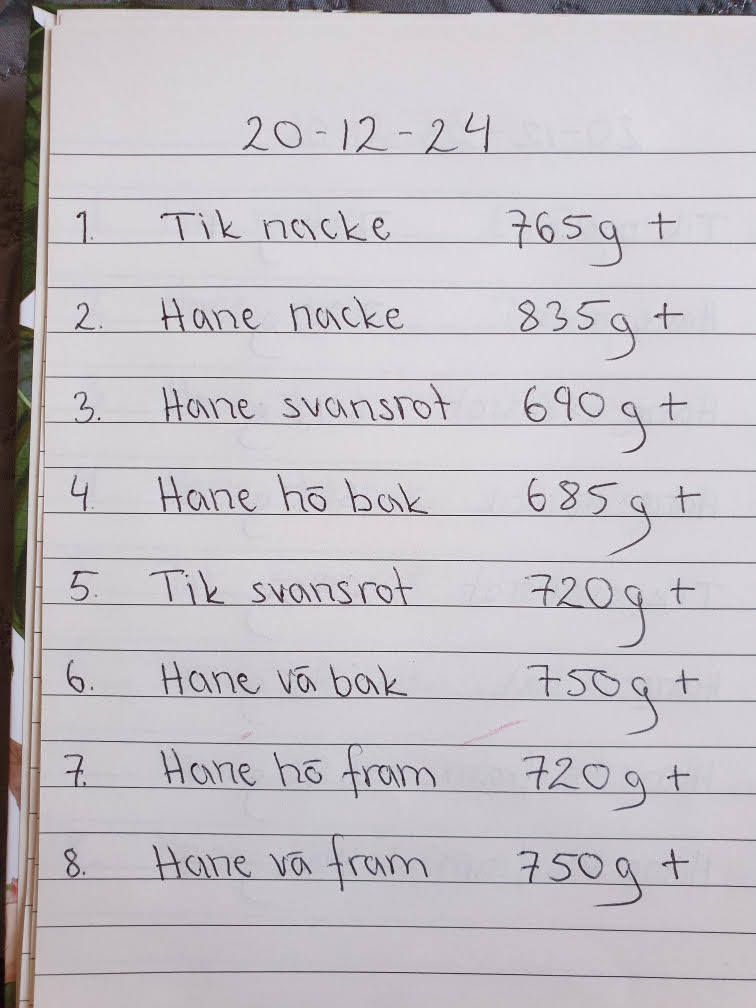 20-12-24
1. Tik nacke 765g +
2. Hane nacke 835g +
3. Hane svansrot 690g +
4. Hane hō bak 685g +
5. Tik svansrot 720g +
6. Hane vā bak 750g +
7. Hane hō fram 720g +
8. Hane vā fram 750g +